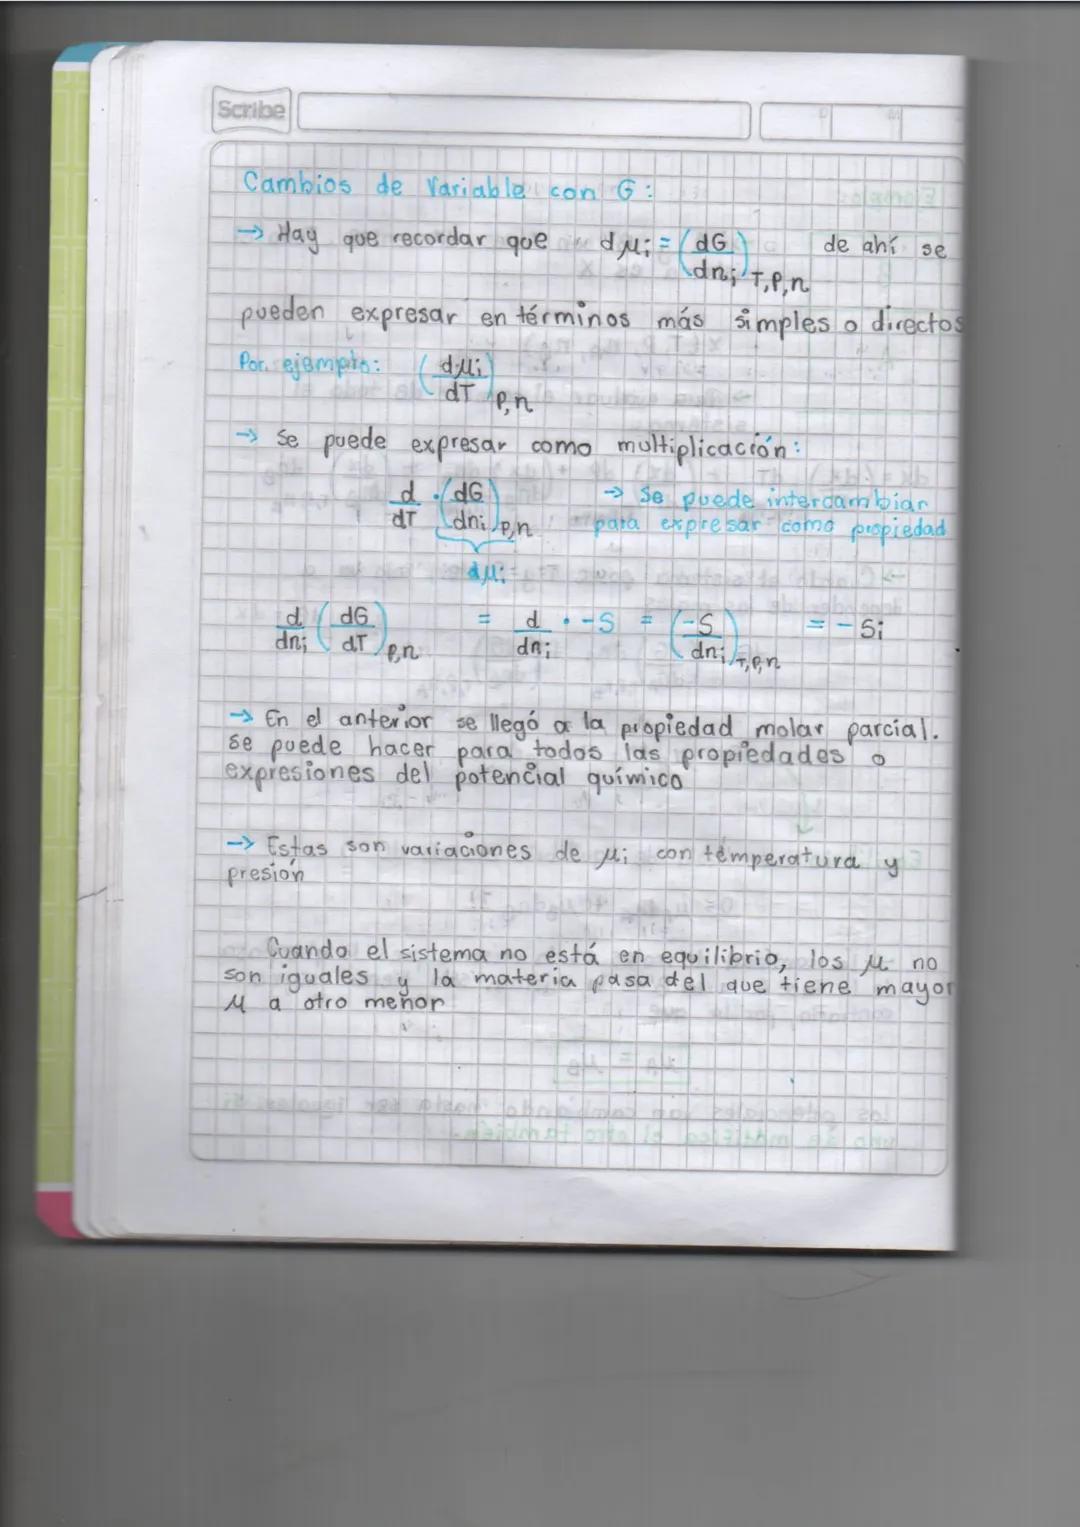 Scribe
Cambios de Variable con G:
→ Hay que recordar que dμi = (dG/dni)T,P,n de ahí se
pueden expresar en términos más simples o directos
Por ejemplo: (dμi/dT)P,n
→ Se puede expresar como multiplicación:
d/dT · (dG/dni)P,n → Se puede intercambiar
para expresar como propiedad
dμi
d/dni (dG/dT)P,n = d/dni · -S = (-S/dni)T,P,n = - Si
→ En el anterior se llegó a la propiedad molar parcial.
se puede hacer para todos las propiedades o
expresiones del potencial químico
→ Estas son variaciones de μi con temperatura y
presión
Cuando el sistema no está en equilibrio, los μ no
son iguales y la materia pasa del que tiene mayor
μ a otro menor